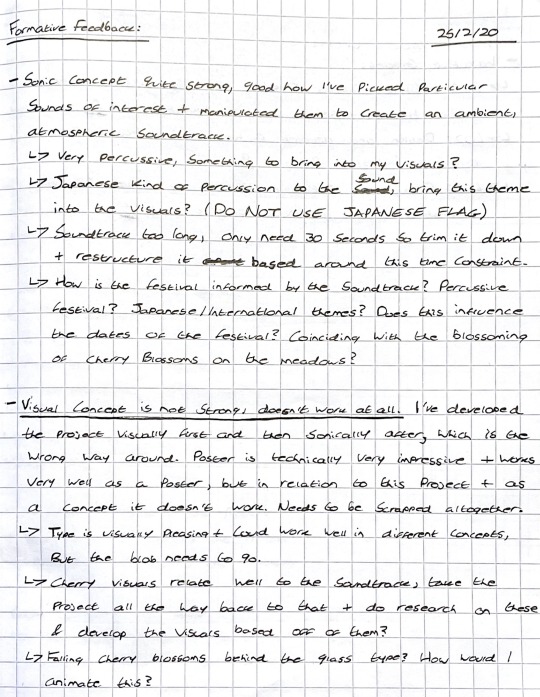 Formative Feedback:
25/2/20
- Sonic Concept quite strong, good how I've picked particular
sounds of interest + manipulated them to create an ambient,
atmospheric soundtrack.
↳ Very percussive, something to bring into my visuals?
↳ Japanese kind of percussion to the sound, bring this theme
into the visuals? (DO NOT USE JAPANESE FLAG)
↳ Soundtrack too long, only need 30 seconds so trim it down
+ restructure it based around this time constraint.
↳ How is the festival informed by the soundtrack? Percussive
festival? Japanese/International themes? Does this influence
the dates of the festival? Coinciding with the blossoming
of Cherry Blossoms on the meadows?
- Visual Concept is not strong, doesn't work at all. I've developed
the project visually first and then sonically after, which is the
wrong way around. Poster is technically very impressive + works
very well as a poster, but in relation to this project + as
a concept it doesn't work. Needs to be scrapped altogether.
↳ Type is visually pleasing + could work well in different concepts,
But the blob needs to go.
↳ Cherry visuals relate well to the soundtrack, take the
project all the way back to that + do research on these
& develop the visuals based off of them?
↳ Falling cherry blossoms behind the glass type? How would I
animate this?